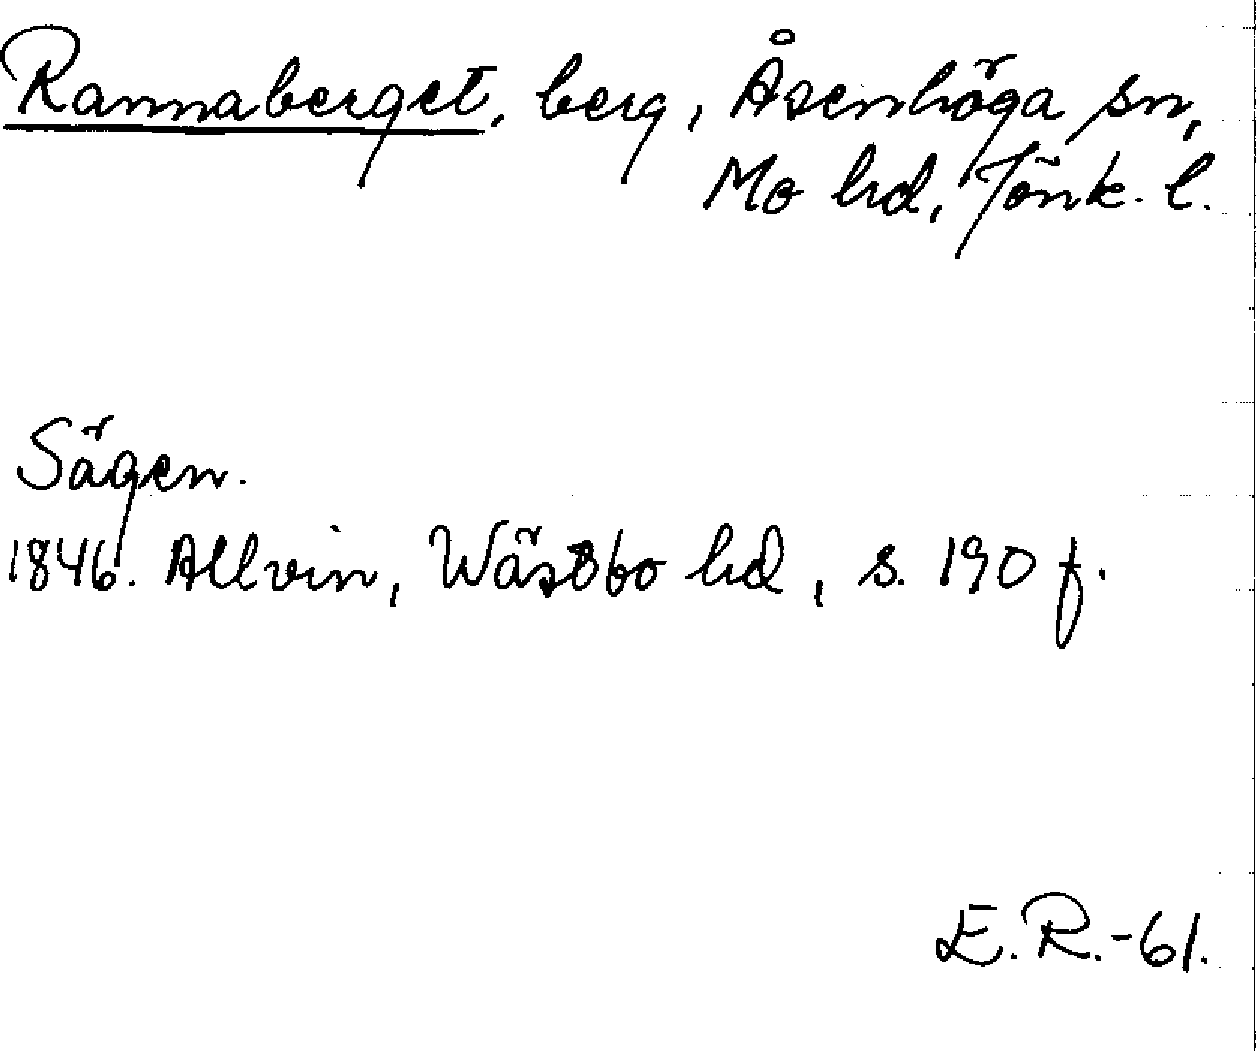 Rannaberget, berg, Åsenhöga sn,
Mo hd, Jönk. l.
Sägen.
1846. Allvin, Wästbo hd, s. 190 f.
E.R.-61.